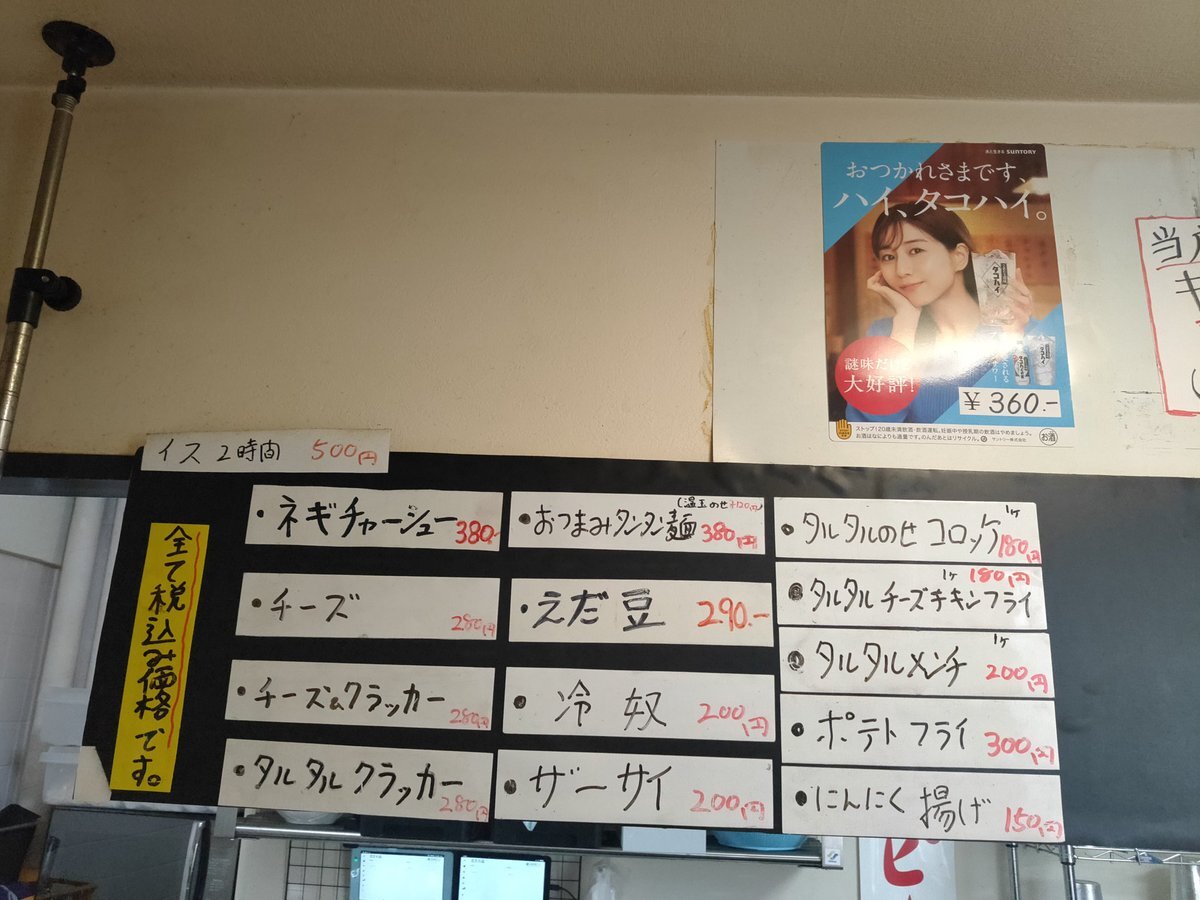 水と生きる SUNTORY
おつかれさまです、
ハイ、タコハイ。
タコハイ
謎味だけど
大好評!
¥360.-
ストップ!20歳未満飲酒・飲酒運転。妊娠中や授乳期の飲酒はやめましょう。
お酒はなによりも適量です。のんだあとはリサイクル。
サントリー株式会社
お酒
イス 2時間 500円
全て税込み価格です。
・ネギチャーシュー 380.-
・チーズ 280円
・チーズ&クラッカー 280円
・タルタルクラッカー 280円
(温玉のせ+120円)
・おつまみタンタン麺 380円
・えだ豆 290.-
・冷奴 200円
・ザーサイ 200円
・タルタルのせコロッケ 1ヶ 180円
1ヶ 180円
・タルタルチーズチキンフライ
・タルタルメンチ 1ヶ 200円
・ポテトフライ 300円
・にんにく揚げ 150円